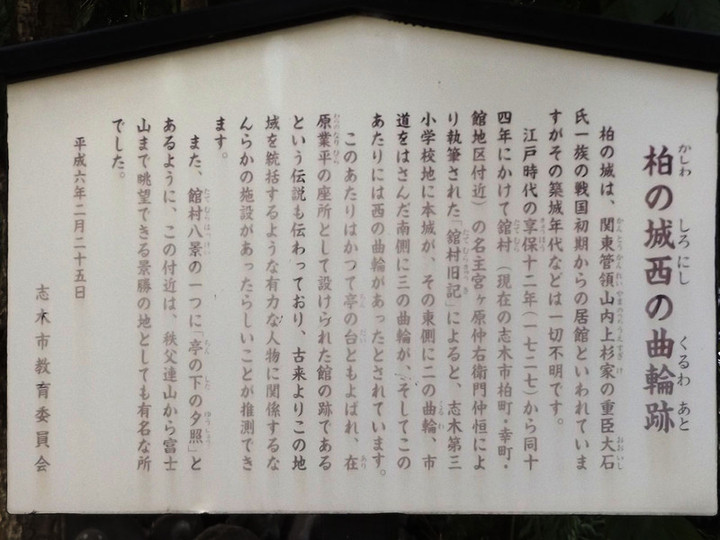 柏の城西の曲輪跡
柏の城は、関東管領山内上杉家の重臣大石
氏一族の戦国初期からの居館といわれていま
すがその築城年代などは一切不明です。
江戸時代の享保十二年(一七二七)から同十
四年にかけて舘村(現在の志木市柏町・幸町・
館地区付近)の名主宮ヶ原仲右衛門仲恒によ
り執筆された「舘村旧記」によると、志木第三
小学校地に本城が、その東側に二の曲輪、市
道をはさんだ南側に三の曲輪が、そしてこの
あたりには西の曲輪があったとされています。
このあたりはかつて亭の台ともよばれ、在
原業平の座所として設けられた館の跡である
という伝説も伝わっており、古来よりこの地
域を統括するような有力な人物に関係するな
んらかの施設があったらしいことが推測でき
ます。
また、舘村八景の一つに「亭の下の夕照」と
あるように、この付近は、秩父連山から富士
山まで眺望できる景勝の地としても有名な所
でした。
平成六年二月二十五日
志木市教育委員会